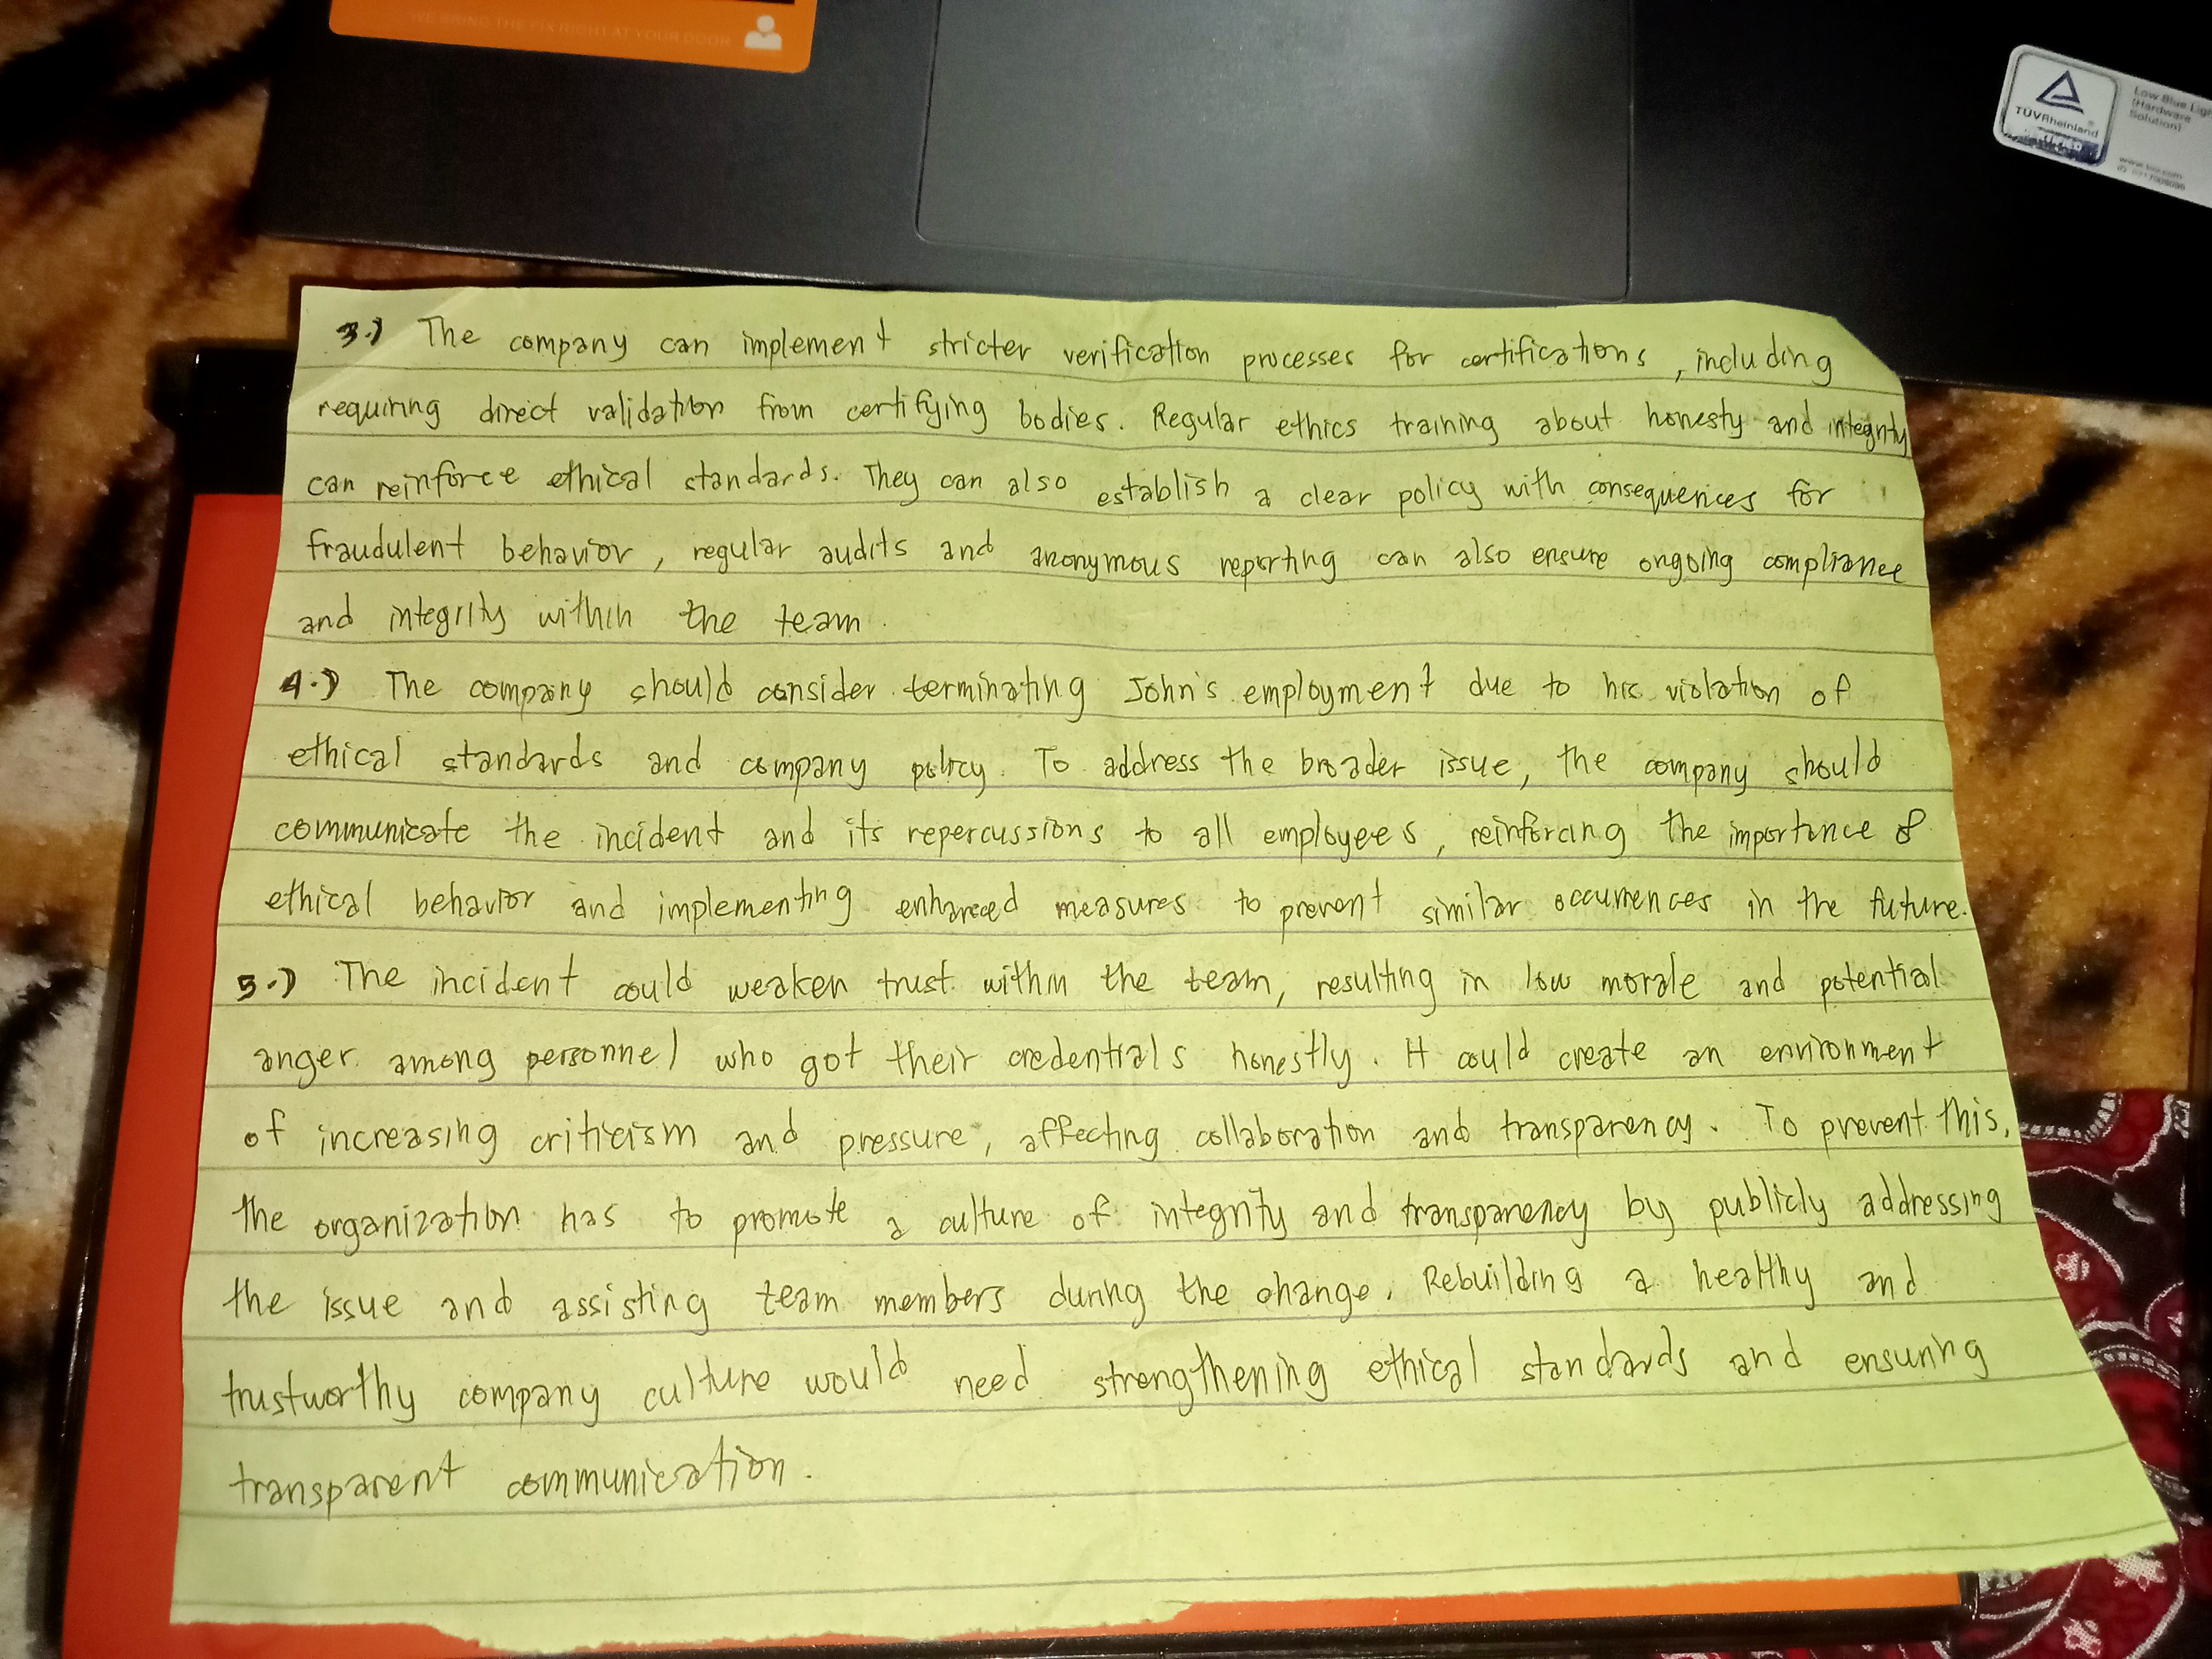 WE BRING THE FIX RIGHT AT YOUR DOOR
TÜVRheinland
Low Blue
(Hardware
Solution)
3.) The company can implement stricter verification processes for certifications, including
requiring direct validation from certifying bodies. Regular ethics training about honesty and integrity
can reinforce ethical standards. They can also establish a clear policy with consequences for
fraudulent behavior, regular audits and anonymous reporting can also ensure ongoing compliance
and integrity within the team.
4.) The company should consider terminating John's employment due to his violation of
ethical standards and company policy. To address the broader issue, the company should
communicate the incident and its repercussions to all employees, reinforcing the importance of
ethical behavior and implementing enhanced measures to prevent similar occurrences in the future.
5.) The incident could weaken trust within the team, resulting in low morale and potential
anger among personnel who got their credentials honestly. It could create an environment
of increasing criticism and pressure, affecting collaboration and transparency. To prevent this,
the organization has to promote a culture of integrity and transparency by publicly addressing
the issue and assisting team members during the change. Rebuilding a healthy and
trustworthy company culture would need strengthening ethical standards and ensuring
transparent communication.